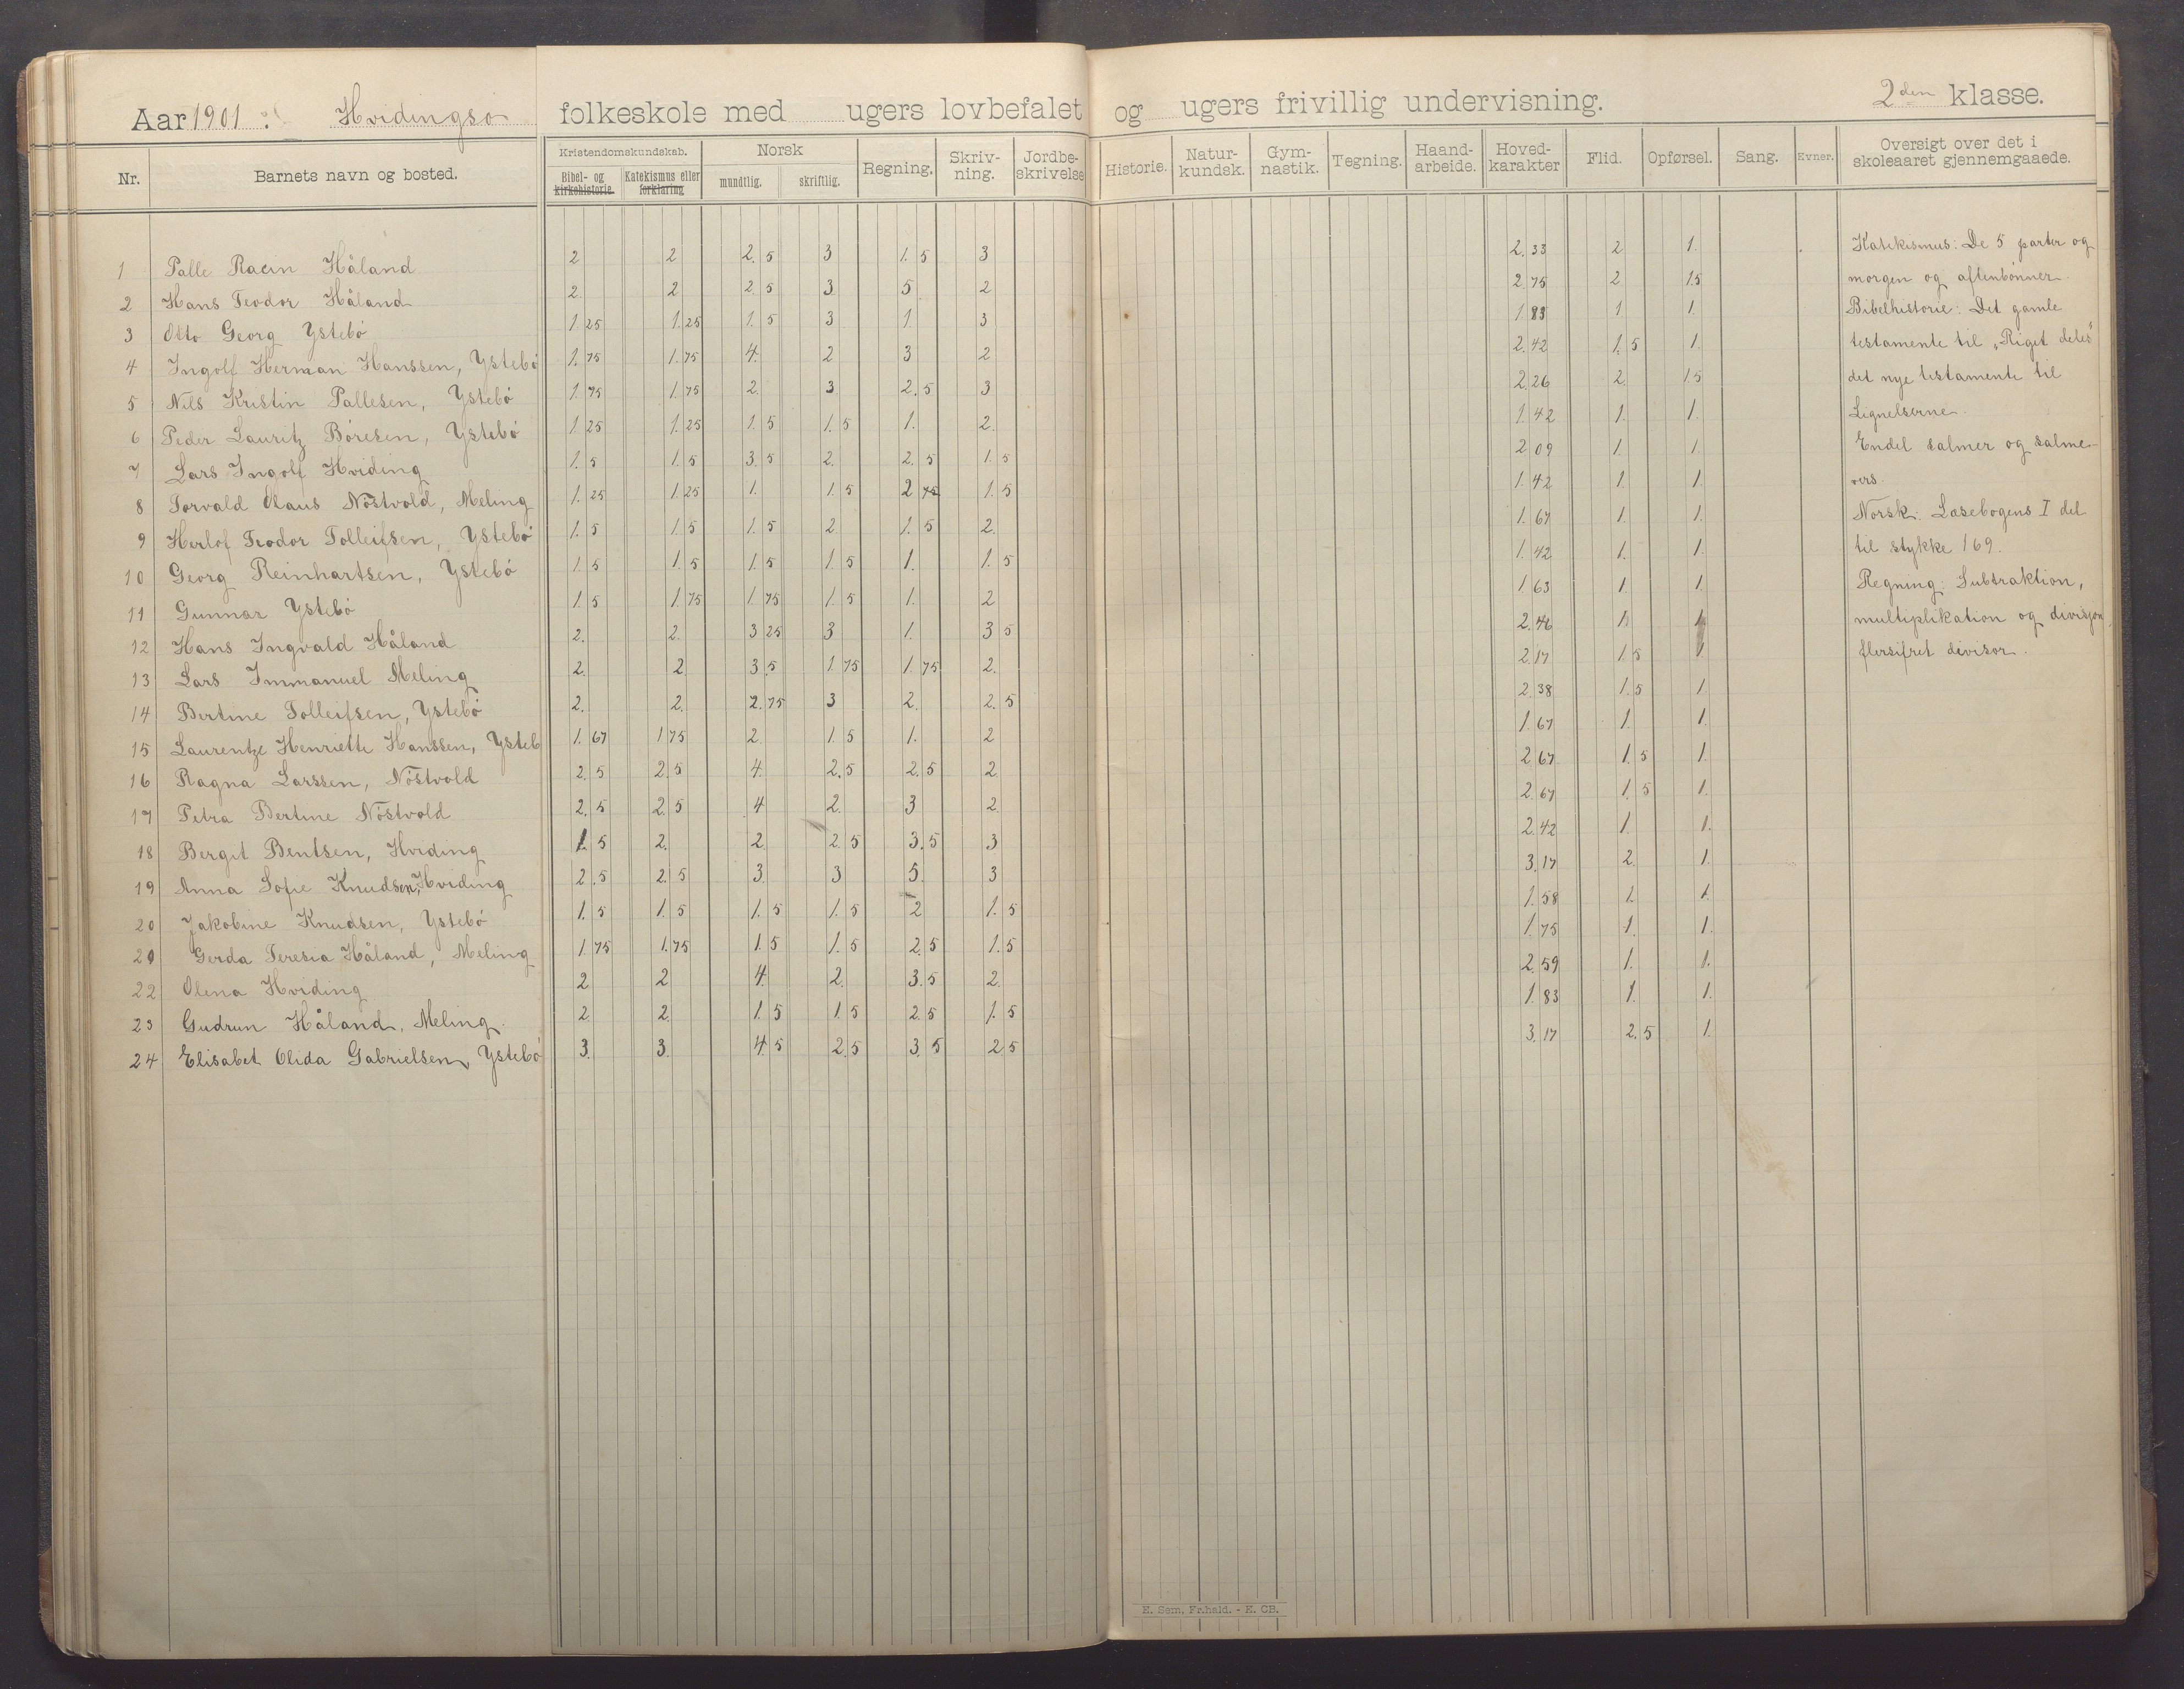 Aar 1901. Hvidingsø folkeskole med ugers lovbefalet og ugers frivillig undervisning. 2den klasse.
Nr. Barnets navn og bosted. Kristendomskundskab. Bibel- og kirkehistorie. Katekismus eller forklaring Norsk mundtlig. skriftlig. Regning. Skriv-ning. Jordbe-skrivelse Historie. Natur-kundsk. Gym-nastik. Tegning. Haand-arbeide. Hoved-karakter Flid. Opførsel. Sang. Evner. Oversigt over det i skoleaaret gjennemgaaede.
1 Palle Racin Håland 2 2 2.5 3 1.5 3 2.33 2 1.
2 Hans Teodor Håland 2 2 2 5 3 5 2 2 75 2 1 5
3 Otto Georg Ystebø 1.25 1.25 1.5 3 1. 3 1.83 1 1.
4 Ingolf Herman Hanssen, Ystebø 1.75 1.75 4. 2 3 2 2.42 1.5 1.
5 Nils Kristin Pallesen, Ystebø 1.75 1.75 2. 3 2.5 3 2.26 2. 1 5
6 Peder Lauritz Børesen, Ystebø 1.25 1.25 1.5 1.5 1. 2. 1.42 1. 1.
7 Lars Ingolf Hviding 1.5 1.5 3.5 2. 2.5 1.5 2 09 1. 1
8 Torvald Olaus Nøstvold, Meling 1.25 1.25 1. 1.5 2 75 1.5 1.42 1. 1.
9 Herlof Teodor Tolleifsen, Ystebø 1.5 1.5 1.5 2. 1.5 2. 1.67 1. 1.
10 Georg Reinhartsen, Ystebø 1.5 1.5 1.5 1.5 1. 1.5 1.42 1. 1.
11 Gunnar Ystebø 1.5 1.75 1.75 1.5 1. 2 1 63 1. 1.
12 Hans Ingvald Håland 2. 2. 3 25 3 1. 3 5 2.46 1 1
13 Lars Immanuel Meling 2. 2 3.5 1 75 1.75 2. 2.17 1.5 1.
14 Bertine Tolleifsen, Ystebø 2. 2. 2.75 3 2. 2.5 2.38 1.5 1.
15 Laurentze Henriette Hanssen, Ysteb 1.67 1 75 2 1.5 1. 2 1.67 1. 1.
16 Ragna Larssen, Nøstvold 2.5 2 5 4. 2.5 2.5 2 2.67 1.5 1.
17 Petra Bertine Nøstvold 2.5 2 5 4 2. 3 2. 2.67 1.5 1.
18 Bergit Bentsen, Hviding 1.5 2. 2 2 5 3.5 3 2.42 1. 1.
19 Anna Sofie Knudsen, Hviding 2.5 2.5 3. 3 5. 3 3.17 2. 1.
20 Jakobine Knudsen, Ystebø 1.5 1.5 1.5 1.5 2 1.5 1.58 1. 1.
20 Gerda Teresia Håland, Meling 1.75 1.75 1 5 1.5 2.5 1.5 1.75 1. 1.
22 Olena Hviding 2 2 4. 2. 3.5 2. 2.59 1. 1.
23 Gudrun Håland, Meling. 2. 2. 1.5 1 5 2.5 1.5 1.83 1. 1.
24 Elisabet Olida Gabrielsen, Ystebø 3. 3. 4.5 2.5 3.5 2 5 3.17 2.5 1.
Katekismus: De 5 parter og
morgen og aftenbønner.
Bibelhistorie: Det gamle
testamente til „Riget deles"
det nye testamente til
Lignelserne.
Endel salmer og salme-
vers.
Norsk: Læsebogens I del
til stykke 169.
Regning: Subtraktion,
multiplikation og divisjon,
flersifret divisor.
E. Sem, Fr.hald. - E. CB.